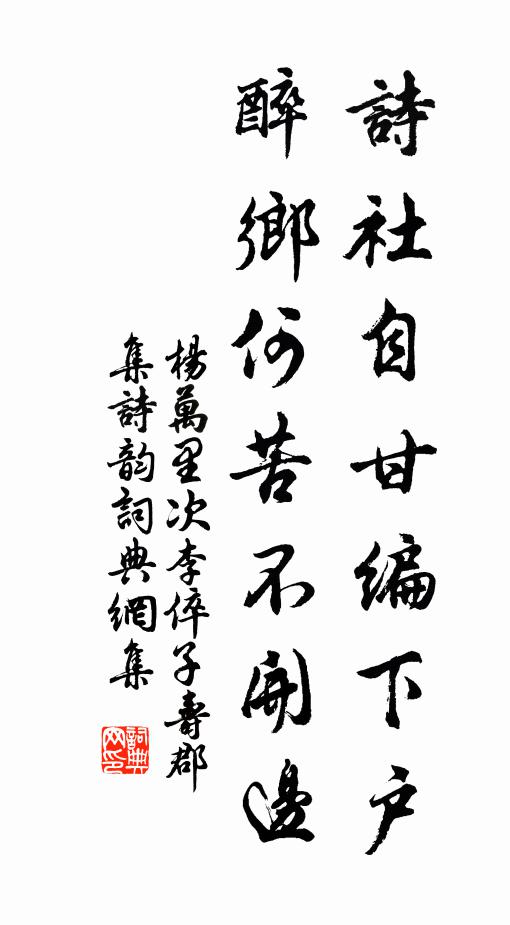 詩社自甘編下户
醉鄉何苦不開邊
楊萬里次李倅子壽郡
集詩韵詞典網集
詞典
网印